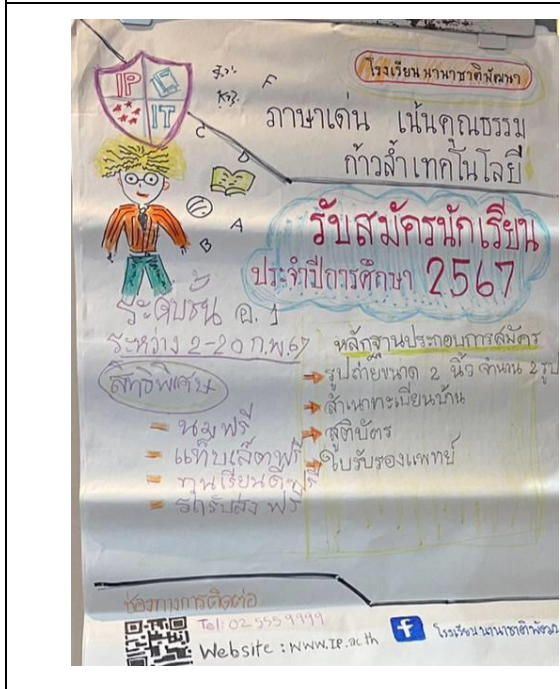 IP
IT
โรงเรียนนานาชาติพัฒนา
ภาษาเด่น เน้นคุณธรรม
ก้าวล้ำเทคโนโลยี
F
C
D
A
B
รับสมัครนักเรียน
ประจำปีการศึกษา 2567
ระดับชั้น อ.1
ระหว่าง 2-20 ก.พ.67
สิทธิพิเศษ
นมฟรี
แท็บเล็ตฟรี
ทุนเรียนดีฟรี
รถรับส่ง ฟรี
หลักฐานประกอบการสมัคร
รูปถ่ายขนาด 2 นิ้ว จำนวน 2 รูป
สำเนาทะเบียนบ้าน
สูติบัตร
ใบรับรองแพทย์
ช่องทางการติดต่อ
Tel: 02 5559999
Website : www.IP.ac.th
f โรงเรียนนานาชาติพัฒนา